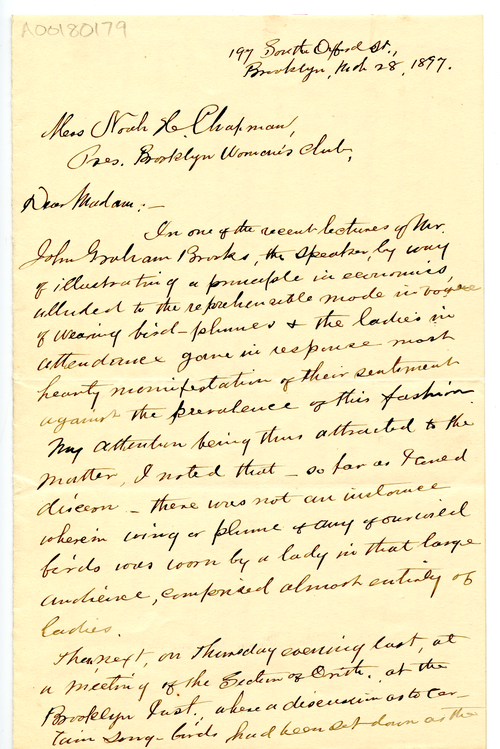 A00180179
197 South Oxford St.,
Brooklyn, Mch 28, 1897.
Mrs Noah H. Chapman,
Pres. Brooklyn Woman's Club,
Dear Madam:—
In one of the recent lectures of Mr.
John Graham Brooks, the speaker, by way
of illustrating a principle in economics,
alluded to the reprehensible mode in vogue
of wearing bird-plumes & the ladies in
attendance gave in response most
hearty manifestation of their sentiment
against the prevalence of this fashion.
My attention being thus attracted to the
matter, I noted that — so far as I could
discern — there was not an instance
wherein wing or plume of any of our wild
birds was worn by a lady in that large
audience, comprised almost entirely of
ladies.
Then next, on Thursday evening last, at
a meeting of the Section of Ornith. at the
Brooklyn Inst., when a discussion as to cer-
tain song-birds had been set down as the